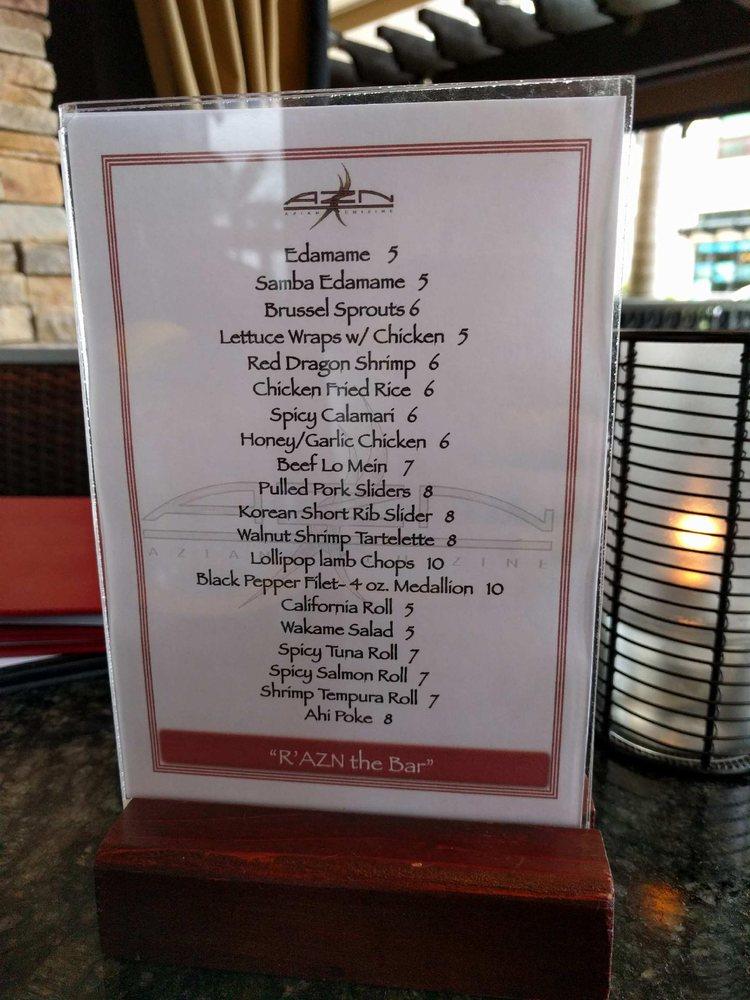 AZN
AZIAN CUIZINE
Edamame 5
Samba Edamame 5
Brussel Sprouts 6
Lettuce Wraps w/ Chicken 5
Red Dragon Shrimp 6
Chicken Fried Rice 6
Spicy Calamari 6
Honey/Garlic Chicken 6
Beef Lo Mein 7
Pulled Pork Sliders 8
Korean Short Rib Slider 8
Walnut Shrimp Tartelette 8
Lollipop lamb Chops 10
Black Pepper Filet- 4 oz. Medallion 10
California Roll 5
Wakame Salad 5
Spicy Tuna Roll 7
Spicy Salmon Roll 7
Shrimp Tempura Roll 7
Ahi Poke 8
"R'AZN the Bar"